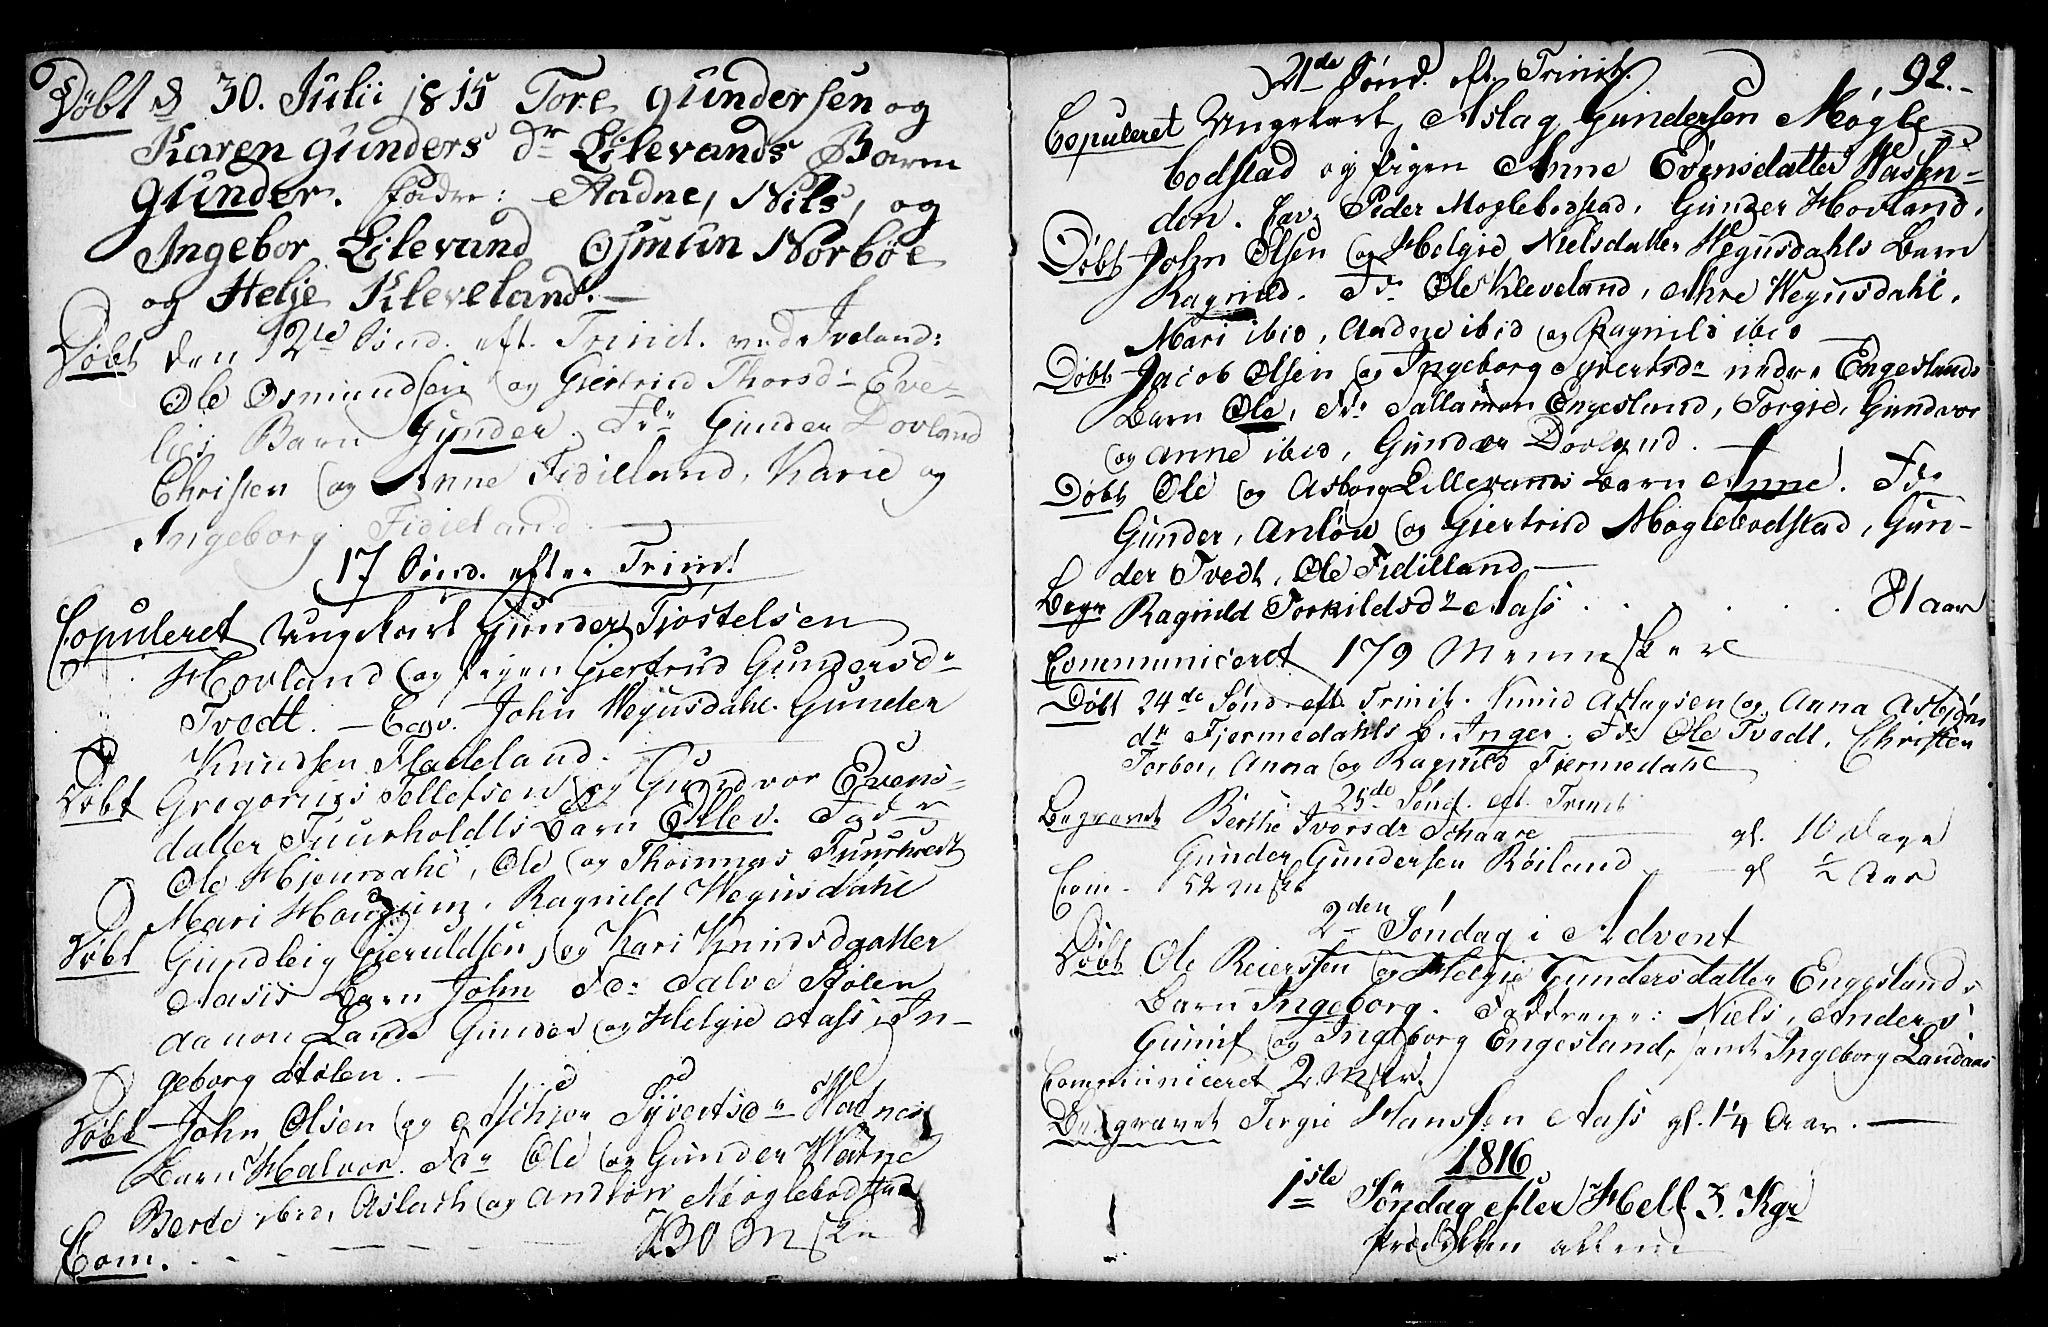 Døbt d 30. Julii 1815 Tore gundersen og
Karen gunders dr Lilevands Barn
gunder. fadre: Aadne, Nils, og
Ingebor Lilevand Osmun Norbøe
og Helje Kleveland. —
Døbt den 12te Sønd. eft. Trinit. ved Iveland:
Ole Osmundsen og Giertrud Thorsdr Eve-
lies Barn Gunder. Fdr Gunder Dovland
Christen og Anne Fidieland, Karie og
Ingeborg Fidieland. —
17 Sønd. efter Trinit
Copuleret Ungekarl Gunder Tjøstelsen
Hovland og Pigen Giertrud Gundersdr
Tvedt. — Cav. John Wegusdahl. Gunder
Knudsen Fladeland.
Døbt Gregorius Tellefsen og Gundvor Evens-
datter Fuurholdts Barn Ellev. Fadr
Ole Hjeursdahl, Ole og Thommas
Mari, Ragnild Wegusdahl
Døbt Gundleig Gieruldsen og Kari Knudsdaatter
Aasis Barn John Fdr Salve Stølen
Lande Gunder og Helgie Aass, In-
geborg Stølen. —
Døbt John Olsen og Syvertsdr
Barn Halvor. Fdr Ole og Gunder
Berte ibid, Aslach og Andlow Møglebodstad
Com. - - - - - 230 Msker
21de Sønd. eft. Trinit. 92.-
Copuleret Ungekarl Aslag Gundersen Møgle-
bodstad og Pigen Anne Evensdatter Wassen-
den. Cav. Peder Moglebodstad, Gunder Hovland.
Døbt John Olsen og Helgie Nielsdatter Wegusdahls Barn
Ragnild. Fdr Ole Kleveland, Wegusdahl,
Mari ibid, Aadne ibid og Ragnild ibid
Døbt Jacob Olsen og Ingeborg Syvertsdr nedre Engeslands
Barn Ole, Fdr Salamon Engesland, Torgie, Gundvor
og Anne ibid, Gunder Dovland.
Døbt Ole og Asborg Lillevands Barn Anne. Fdr
Gunder, Anlow og Giertrud Møglebodstad, Gun-
der Tvedt, Ole Fidilland —
Begr Ragnild Torkildsdr Aass . . . . . 81 aar
Communiceret 179 Mennesker
Døbt 24de Sønd. eft. Trinit. Knud Aslagsen og Anna Asbjøns
dr Fjermedahls B. Inger. Fdr Ole Tvedt, Christen
Torbor, Anna og Ragnild Fiermedahl
25de Sønd. eft. Trinit
Begravet Berthe Iversdr Schaare — gl. 10 Dage
Gunder Gundersen Røiland — gl ½ Aar
Com- 52 Msker
2den Søndag i Advent
Døbt Ole Reierssen og Helgie Gundersdatter Engeslands
Barn Ingeborg. Faddrene: Niels, Anders,
Gunif og Ingeborg Engesland, samt Ingeborg Landaas
Communiceret 2 Mskr.
Begravet Tergie Hanssen Aass gl. 1¼ Aar. —
1816
1ste Søndag efter Hell 3. Kgr
Prædiken allene